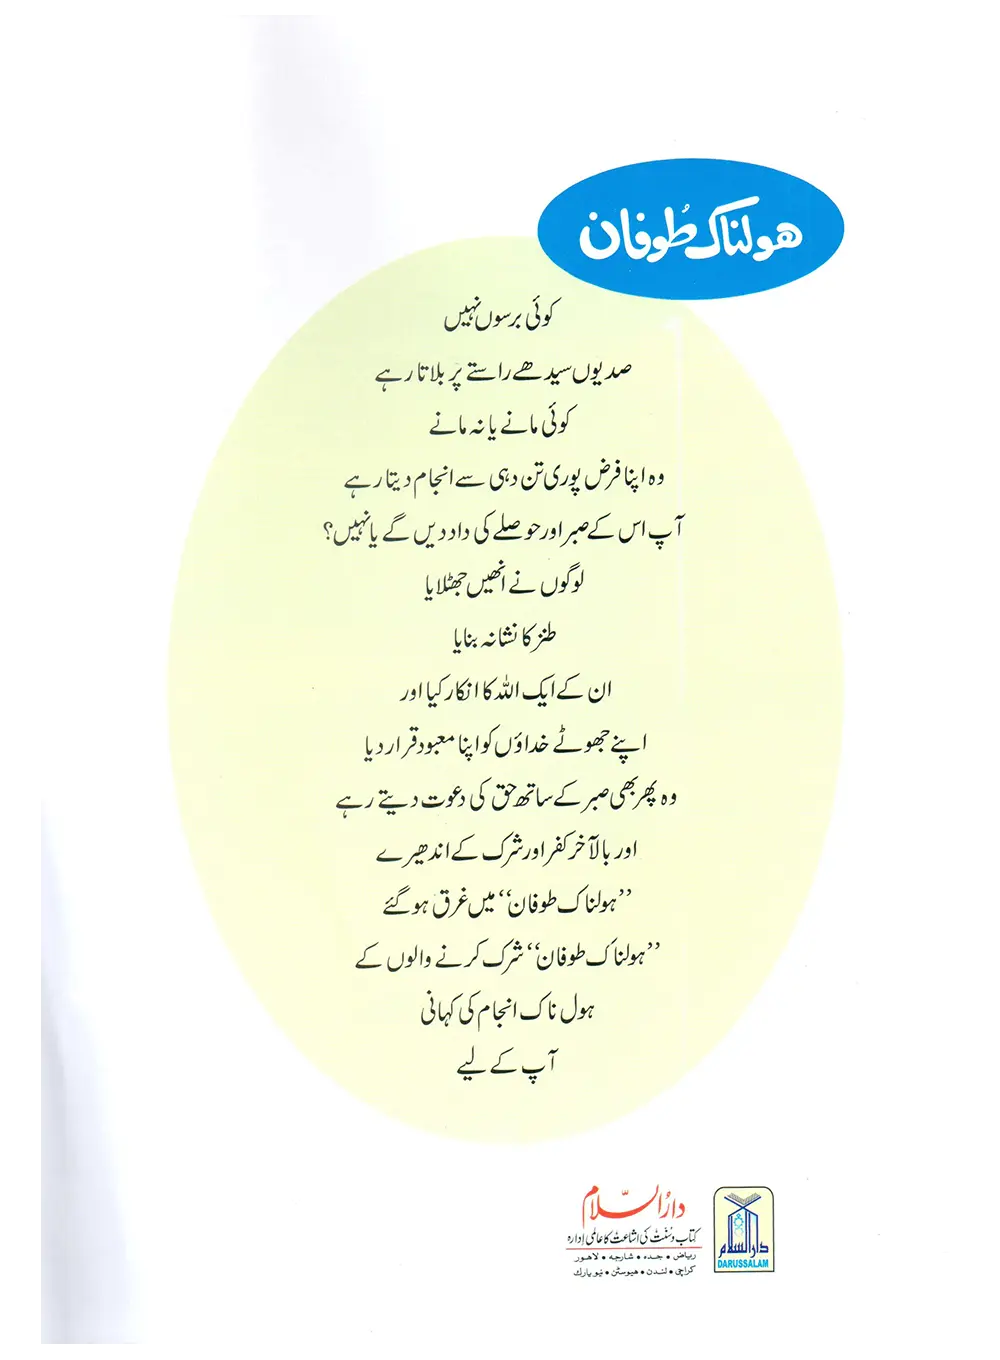 ھولناک طُوفان
کوئی برسوں نہیں
صدیوں سیدھے راستے پر بلاتا رہے
کوئی مانے یا نہ مانے
وہ اپنا فرض پوری تن دہی سے انجام دیتا رہے
آپ اس کے صبر اور حوصلے کی داد دیں گے یا نہیں؟
لوگوں نے انھیں جھٹلایا
طنز کا نشانہ بنایا
ان کے ایک اللہ کا انکار کیا اور
اپنے جھوٹے خداؤں کو اپنا معبود قرار دیا
وہ پھر بھی صبر کے ساتھ حق کی دعوت دیتے رہے
اور بالآخر کفر اور شرک کے اندھیرے
’’ہولناک طوفان‘‘ میں غرق ہو گئے
’’ہولناک طوفان‘‘ شرک کرنے والوں کے
ہول ناک انجام کی کہانی
آپ کے لیے
دارُالسّلام
کتاب و سُنّت کی اشاعت کا عالمی ادارہ
ریاض • جدہ • شارجہ • لاهور
کراچی • لندن • هیوسٹن • نیو یارک
دارالسلام
DARUSSALAM